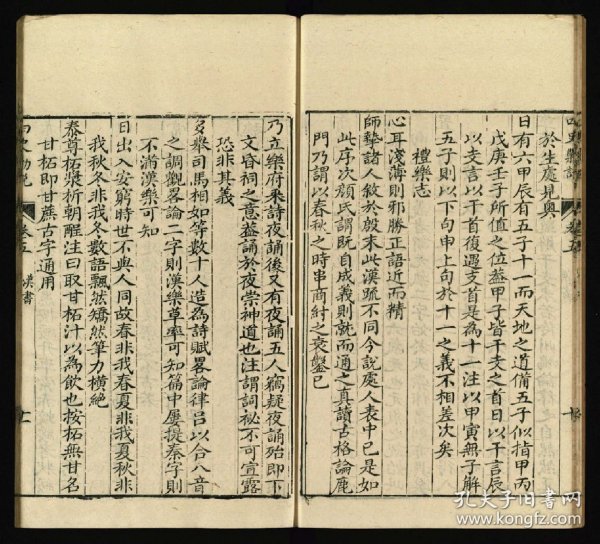 於生處見與
日有六甲辰有五子十一而天地之道備五子似指甲丙
戊庚壬子所值之位蓋甲子皆干支之首日以干言辰
以支言以干首復遇支首是為十一注以甲寅無子解
五子則以下句申上句於十一之義不相差次矣
禮樂志
心耳淺薄則邪勝正語近而精
師摯諸人敘於殷末此漢䟽不同今說處人表中已是如
此序次顏氏謂既自成義則就而通之真讀古格論鹿
門乃謂以春秋之時事商紂之衰鑿已
四史勦說
卷五
漢書
乃立樂府采詩夜誦後又有夜誦五人竊疑夜誦殆即下
文昏祠之意蓋誦於夜崇神道也注謂詞祕不可宣露
恐非其義
多舉司馬相如等數十人造為詩賦畧論律呂以合八音
之調觀畧論二字則漢樂草率可知篇中屢提秦字則
不滿漢樂可知
日出入安窮時世不與人同故春非我春夏非我夏秋非
我秋冬非我冬數語飄然矯然筆力橫絕
泰尊柘漿析朝酲注曰取甘柘汁以為飲也按柘無甘名
甘柘即甘蔗古字通用
四史勦說
卷五
漢書
十一
孔夫子旧书网
www.kongfz.com